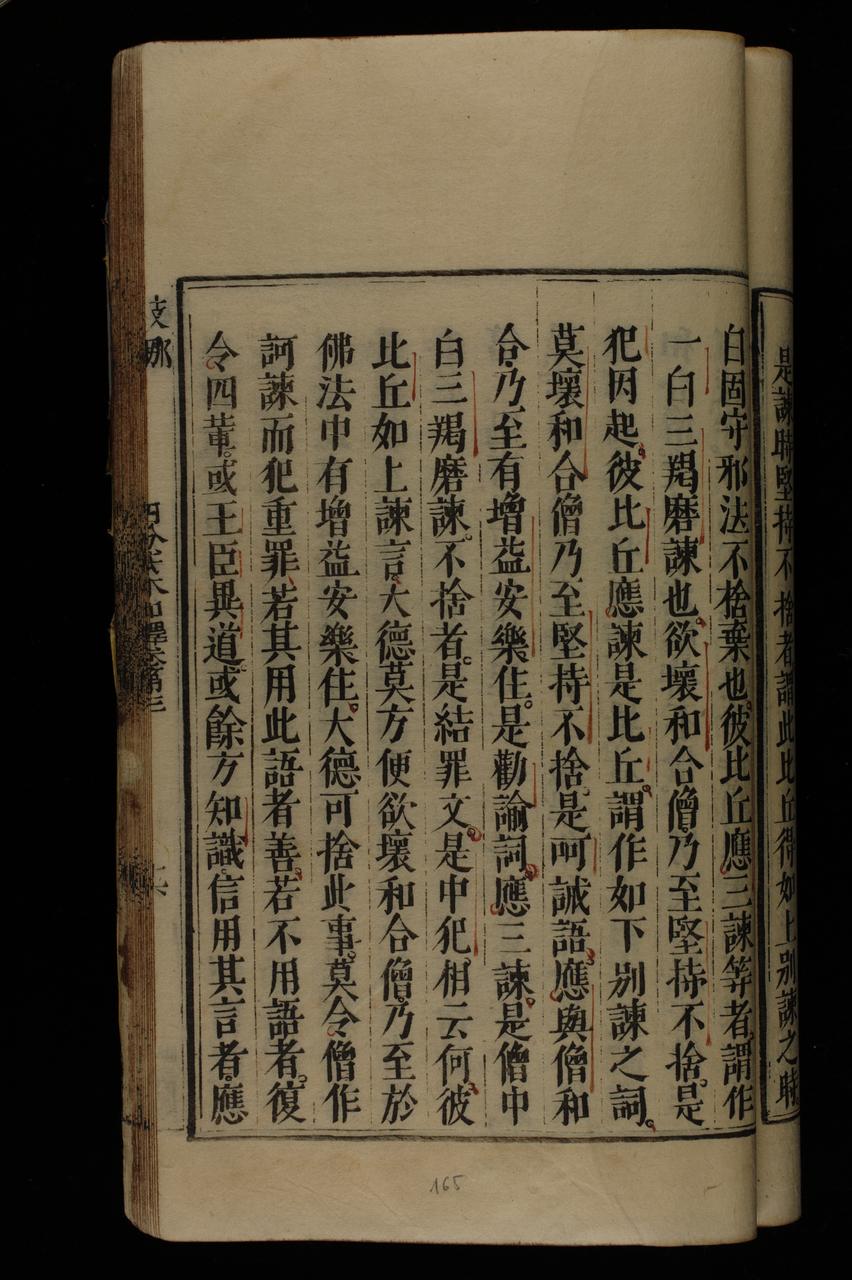 是諫時堅持不捨者謂此比丘得如上別諫之時
自固守邪法不捨棄也。彼比丘應三諫等者。謂作
一白三羯磨諫也。欲壞和合僧。乃至堅持不捨。是
犯因起。彼比丘應諫是比丘。謂作如下別諫之詞。
莫壞和合僧。乃至堅持不捨。是呵誡語。應與僧和
合。乃至有增益安樂住。是勸諭詞。應三諫。是僧中
白三羯磨諫。不捨者。是結罪文。是中犯。相云何。彼
比丘如上諫言。大德莫方便欲壞和合僧。乃至於
佛法中有增益安樂住。大德可捨此事。莫令僧作
訶諫而犯重罪。若其用此語者善。若不用語者。復
令四輩。或王臣異道。或餘方知識。信用其言者。應
支那
四分戒本如釋卷第三
165